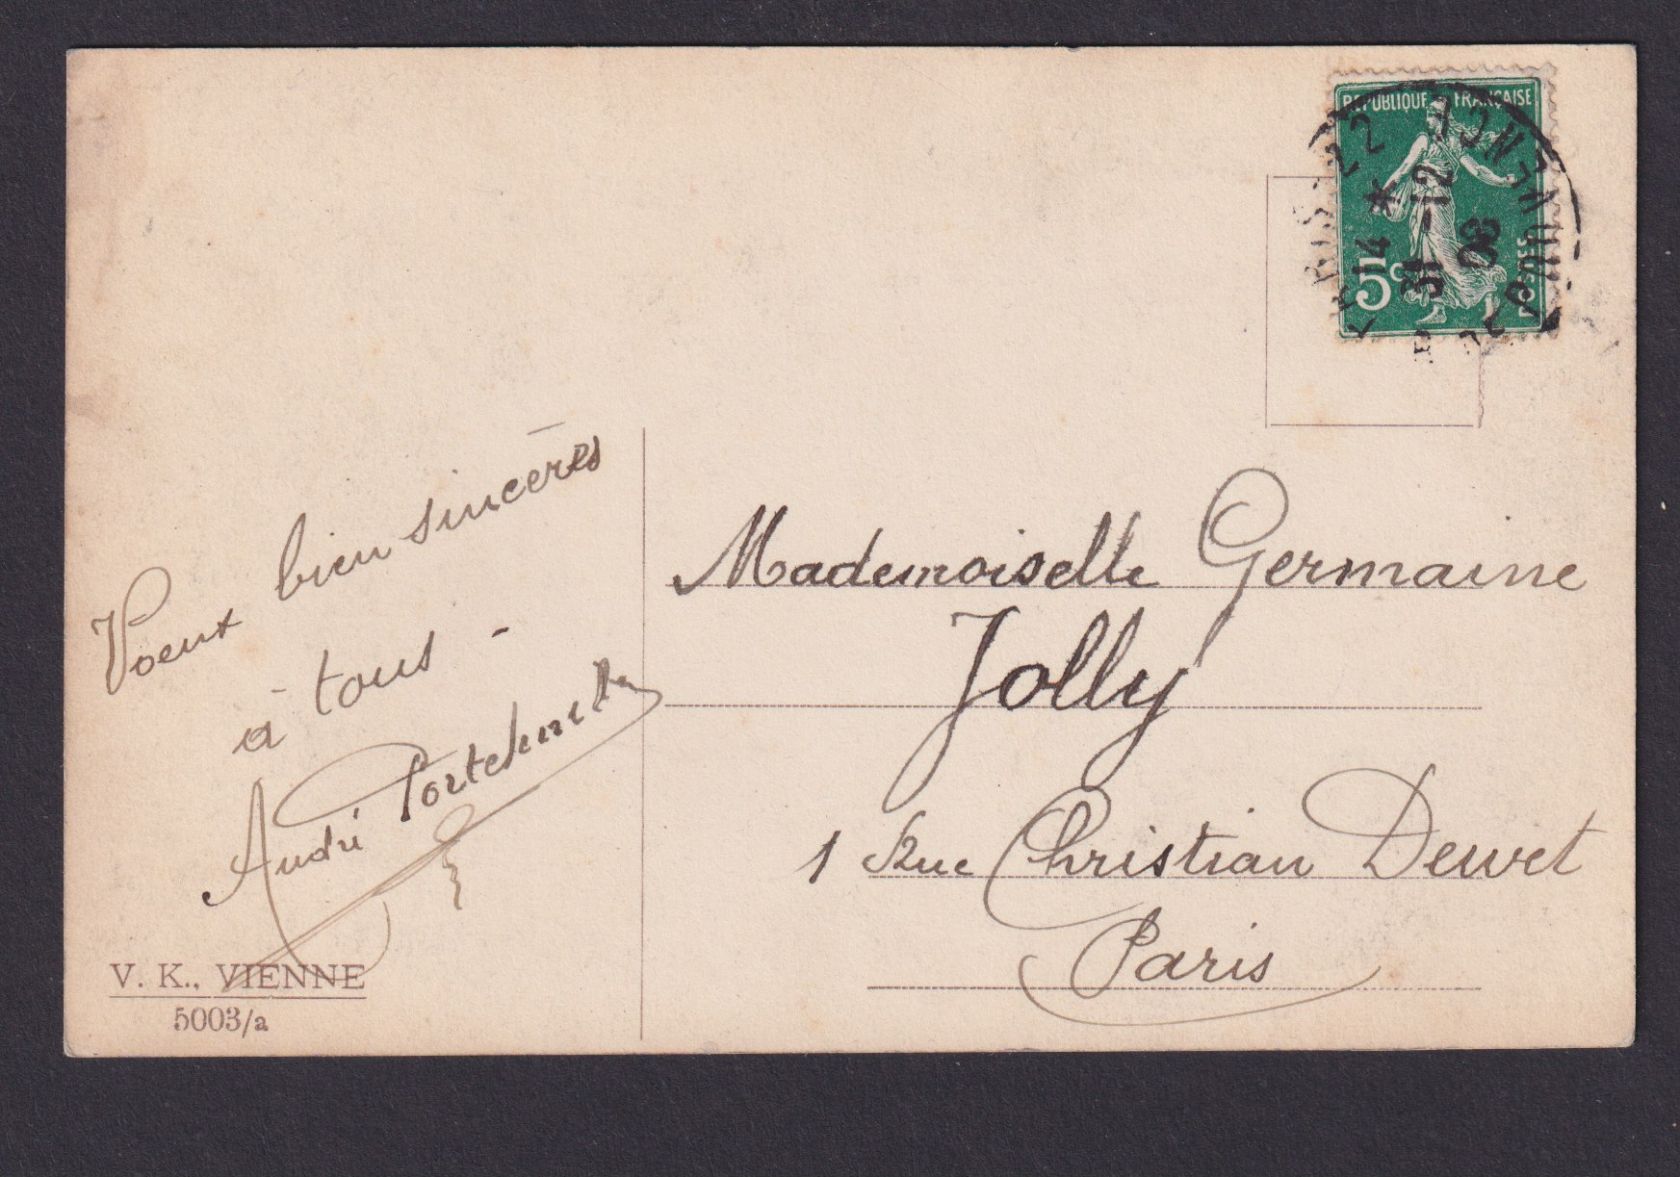 RÉPUBLIQUE FRANÇAISE
5c POSTES
PARIS 22
14 *
31-12
08
R. DE PROVENCE
Voeux bien sincères
à tous -
André
Mademoiselle Germaine
Jolly
1 Rue Christian Dewet
Paris
V. K., VIENNE
5003/a